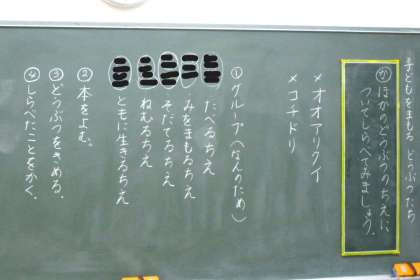 子どもをまもるどうぶつたち
か ほかのどうぶつのちえに
ついてしらべてみましょう。
×オオアリクイ
×コチドリ
①グループ(なんのため)
たべるちえ
みをまもるちえ
そだてるちえ
ねむるちえ
ともに生きるちえ
②本をよむ。
③どうぶつをきめる。
④しらべたことをかく。